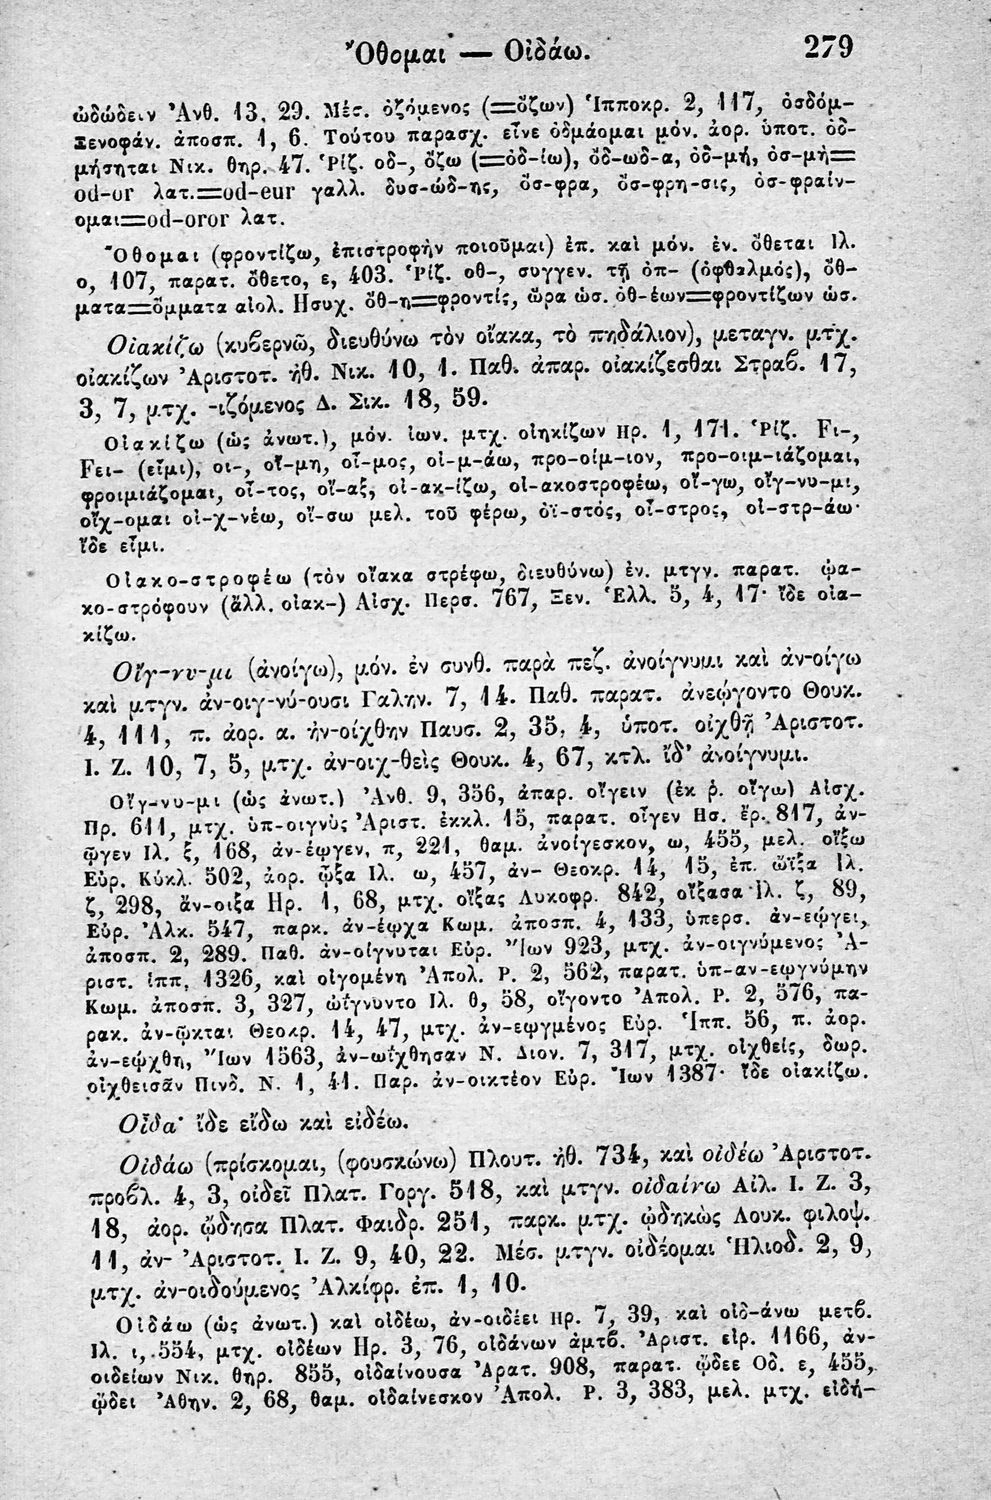 Ὄθομαι — Οἰδάω. 279
ὠδώδειν Ἀνθ. 13, 29. Μέσ. ὀζόμενος (=ὄζων) Ἱπποκρ. 2, 117, ὀσδόμ-
Ξενοφάν. ἀποσπ. 1, 6. Τούτου παρασχ. εἶνε ὀδμάομαι μόν. ἀορ. ὑποτ. ὀδ-
μήσηται Νικ. θηρ. 47. Ῥίζ. οδ-, ὄζω (=ὀδ-ίω), ὄδ-ωδ-α, ὀδ-μή, ὀσ-μὴ=
od-or λατ.=od-eur γαλλ. δυσ-ώδ-ης, ὄσ-φρα, ὄσ-φρη-σις, ὀσ-φραίν-
ομαι=od-oror λατ.
Ὄθομαι (φροντίζω, ἐπιστροφὴν ποιοῦμαι) ἐπ. καὶ μόν. ἐν. ὄθεται Ιλ.
ο, 107, παρατ. ὄθετο, ε, 403. Ῥίζ. οθ-, συγγεν. τῇ ὀπ- (ὀφθαλμός), ὄθ-
ματα=ὄμματα αἰολ. Ησυχ. ὄθ-η=φροντίς, ὥρα ὡσ. ὀθ-έων=φροντίζων ὡσ.
Οἰακίζω (κυβερνῶ, διευθύνω τὸν οἴακα, τὸ πηδάλιον), μεταγν. μτχ.
οἰακίζων Ἀριστοτ. ἠθ. Νικ. 10, 1. Παθ. ἀπαρ. οἰακίζεσθαι Στραβ. 17,
3, 7, μτχ. -ιζόμενος Δ. Σικ. 18, 59.
Οἰακίζω (ὡς ἀνωτ.), μόν. ἰων. μτχ. οἰηκίζων Ηρ. 1, 171. Ῥίζ. Fι-,
Fει- (εἶμι), οι-, οἴ-μη, οἶ-μος, οἰ-μ-άω, προ-οίμ-ιον, προ-οιμ-ιάζομαι,
φροιμιάζομαι, οἶ-τος, οἴ-αξ, οἰ-ακ-ίζω, οἰ-ακοστροφέω, οἴ-γω, οἴγ-νυ-μι,
οἴχ-ομαι οἰ-χ-νέω, οἴ-σω μελ. τοῦ φέρω, ὀϊ-στός, οἶ-στρος, οἰ-στρ-άω·
ἴδε εἶμι.
Οἰακο-στροφέω (τὸν οἴακα στρέφω, διευθύνω) ἐν. μτγν. παρατ. ᾠα-
κο-στρόφουν (ἄλλ. οἰακ-) Αἰσχ. Περσ. 767, Ξεν. Ἑλλ. 5, 4, 17· ἴδε οἰα-
κίζω.
Οἴγ-νυ-μι (ἀνοίγω), μόν. ἐν συνθ. παρὰ πεζ. ἀνοίγνυμι καὶ ἀν-οίγω
καὶ μτγν. ἀν-οιγ-νύ-ουσι Γαλην. 7, 14. Παθ. παρατ. ἀνεῴγοντο Θουκ.
4, 111, π. ἀορ. α. ἠν-οίχθην Παυσ. 2, 35, 4, ὑποτ. οἰχθῇ Ἀριστοτ.
Ι. Ζ. 10, 7, 5, μτχ. ἀν-οιχ-θεὶς Θουκ. 4, 67, κτλ. ἴδ' ἀνοίγνυμι.
Οἴγ-νυ-μι (ὡς ἀνωτ.) Ἀνθ. 9, 356, ἀπαρ. οἴγειν (ἐκ ῥ. οἴγω) Αἰσχ.
Πρ. 611, μτχ. ὑπ-οιγνὺς Ἀριστ. ἐκκλ. 15, παρατ. οἶγεν Ησ. ἔρ. 817, ἀν-
ῷγεν Ιλ. ξ, 168, ἀν-έῳγεν, π, 221, θαμ. ἀνοίγεσκον, ω, 455, μελ. οἴξω
Εὐρ. Κύκλ. 502, ἀορ. ᾦξα Ιλ. ω, 457, ἀν- Θεοκρ. 14, 15, ἐπ. ὤϊξα Ιλ.
ζ, 298, ἄν-οιξα Ηρ. 1, 68, μτχ. οἴξας Λυκοφρ. 842, οἴξασα Ιλ. ζ, 89,
Εὐρ. Ἀλκ. 547, παρκ. ἀν-έῳχα Κωμ. ἀποσπ. 4, 133, ὑπερσ. ἀν-εῴγει,
ἀποσπ. 2, 289. Παθ. ἀν-οίγνυται Εὐρ. Ἴων 923, μτχ. ἀν-οιγνύμενος Ἀ-
ριστ. ἱππ. 1326, καὶ οἰγομένη Ἀπολ. Ρ. 2, 562, παρατ. ὑπ-αν-εῳγνύμην
Κωμ. ἀποσπ. 3, 327, ὠίγνυντο Ιλ. θ, 58, οἴγοντο Ἀπολ. Ρ. 2, 576, πα-
ρακ. ἀν-ῷκται Θεοκρ. 14, 47, μτχ. ἀν-εῳγμένος Εὐρ. Ἱππ. 56, π. ἀορ.
ἀν-εῴχθη, Ἴων 1563, ἀν-ωΐχθησαν Ν. Διον. 7, 317, μτχ. οἰχθείς, δωρ.
οἰχθεισᾶν Πινδ. Ν. 1, 41. Παρ. ἀν-οικτέον Εὐρ. Ἴων 1387· ἴδε οἰακίζω.
Οἶδα· ἴδε εἴδω καὶ εἰδέω.
Οἰδάω (πρίσκομαι, (φουσκώνω) Πλουτ. ἠθ. 734, καὶ οἰδέω Ἀριστοτ.
προβλ. 4, 3, οἰδεῖ Πλατ. Γοργ. 518, καὶ μτγν. οἰδαίνω Αἰλ. Ι. Ζ. 3,
18, ἀορ. ᾤδησα Πλατ. Φαιδρ. 251, παρκ. μτχ. ᾠδηκὼς Λουκ. φιλοψ.
11, ἀν- Ἀριστοτ. Ι. Ζ. 9, 40, 22. Μέσ. μτγν. οἰδέομαι Ἡλιοδ. 2, 9,
μτχ. ἀν-οιδούμενος Ἀλκίφρ. ἐπ. 1, 10.
Οἰδάω (ὡς ἀνωτ.) καὶ οἰδέω, ἀν-οιδέει Ηρ. 7, 39, καὶ οἰδ-άνω μετβ.
Ιλ. ι, 554, μτχ. οἰδέων Ηρ. 3, 76, οἰδάνων ἀμτβ. Ἀριστ. εἰρ. 1166, ἀν-
οιδείων Νικ. θηρ. 855, οἰδαίνουσα Ἀρατ. 908, παρατ. ᾤδεε Οδ. ε, 455,
ᾤδει Ἀθην. 2, 68, θαμ. οἰδαίνεσκον Ἀπολ. Ρ. 3, 383, μελ. μτχ. εἰδή-